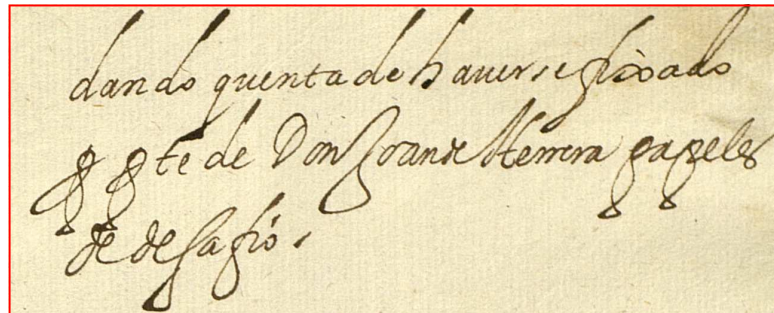 dando quenta de hauerse fixado
p pte de Don Joan de Herrera papeles
de desafio.